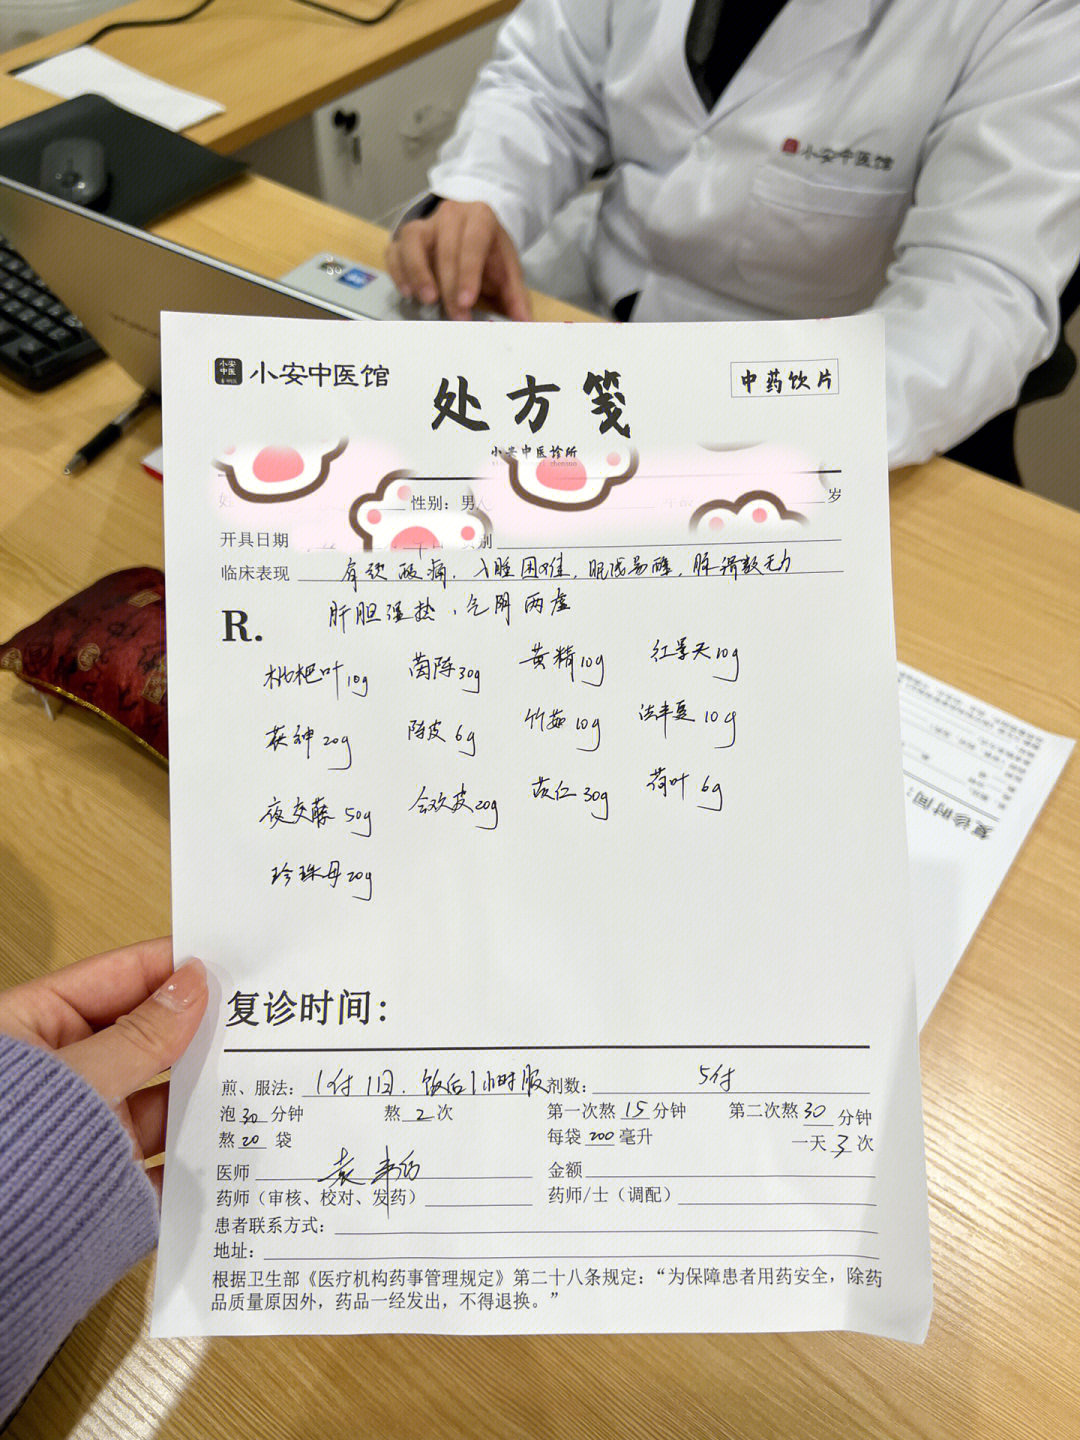 小安中医馆
小安中医 小安中医馆
处方笺
中药饮片
小安中医诊所
性别：男
岁
开具日期
临床表现 肩颈酸痛，入睡困难，眠浅易醒，脉滑数无力
R. 肝胆湿热，气阴两虚
枇杷叶10g 茵陈30g 黄精10g 红景天10g
茯神20g 陈皮6g 竹茹10g 法半夏10g
夜交藤50g 合欢皮20g 苡仁30g 荷叶6g
珍珠母20g
复诊时间：
复诊时间：
煎、服法：1付1日．饭后1小时服 剂数：5付
泡30分钟 熬2次 第一次熬15分钟 第二次熬30分钟
熬20袋 每袋200毫升 一天3次
医师 金额
药师（审核、校对、发药） 药师/士（调配）
患者联系方式：
地址：
根据卫生部《医疗机构药事管理规定》第二十八条规定：“为保障患者用药安全，除药
品质量原因外，药品一经发出，不得退换。”